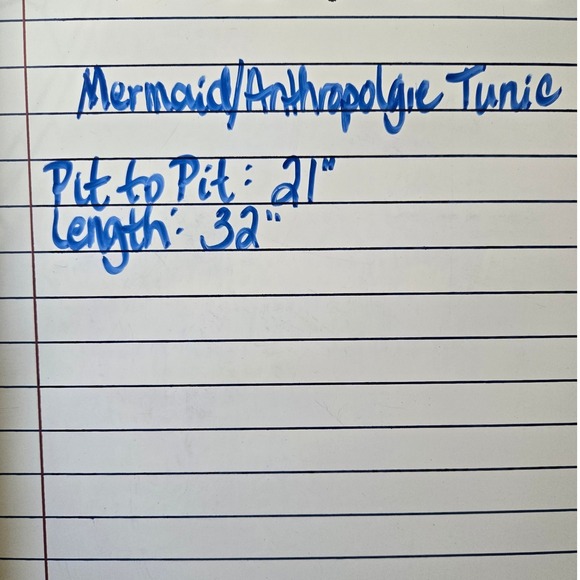 Mermaid/Anthropolgie Tunic
Pit to Pit: 21"
Length: 32"